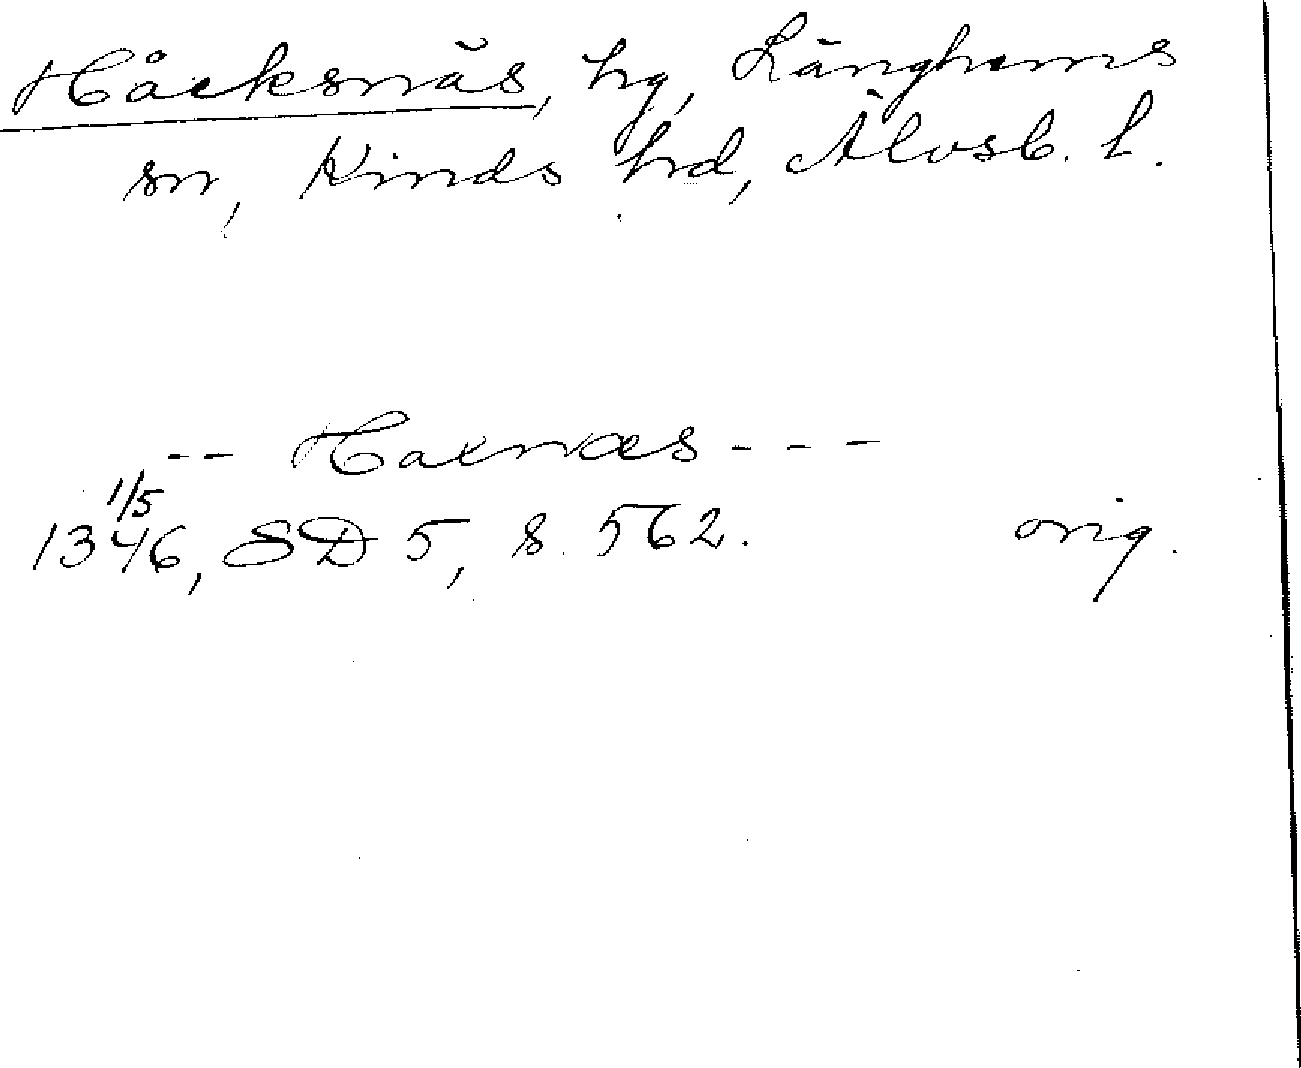 Håcksnäs, hg, Länghems
sn, Kinds hrd, Älvsb. l.
-- Hacnæs ---
1/5
1346, SD 5, s. 562. orig.